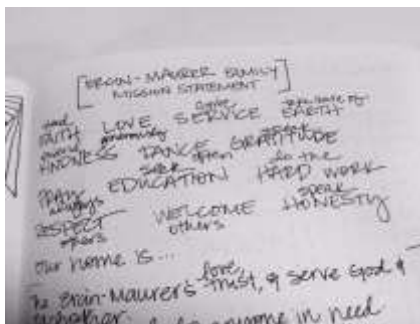 [ERGIN-MAURER FAMILY
MISSION STATEMENT]
FAITH LOVE generously SERVICE take care of EARTH
KINDNESS DANCE often GRATITUDE
PRAY always seek EDUCATION do the HARD WORK
RESPECT others WELCOME others speak HONESTY
Our home is...
The Ergin-Maurer's love, trust, & serve God &
anyone in need